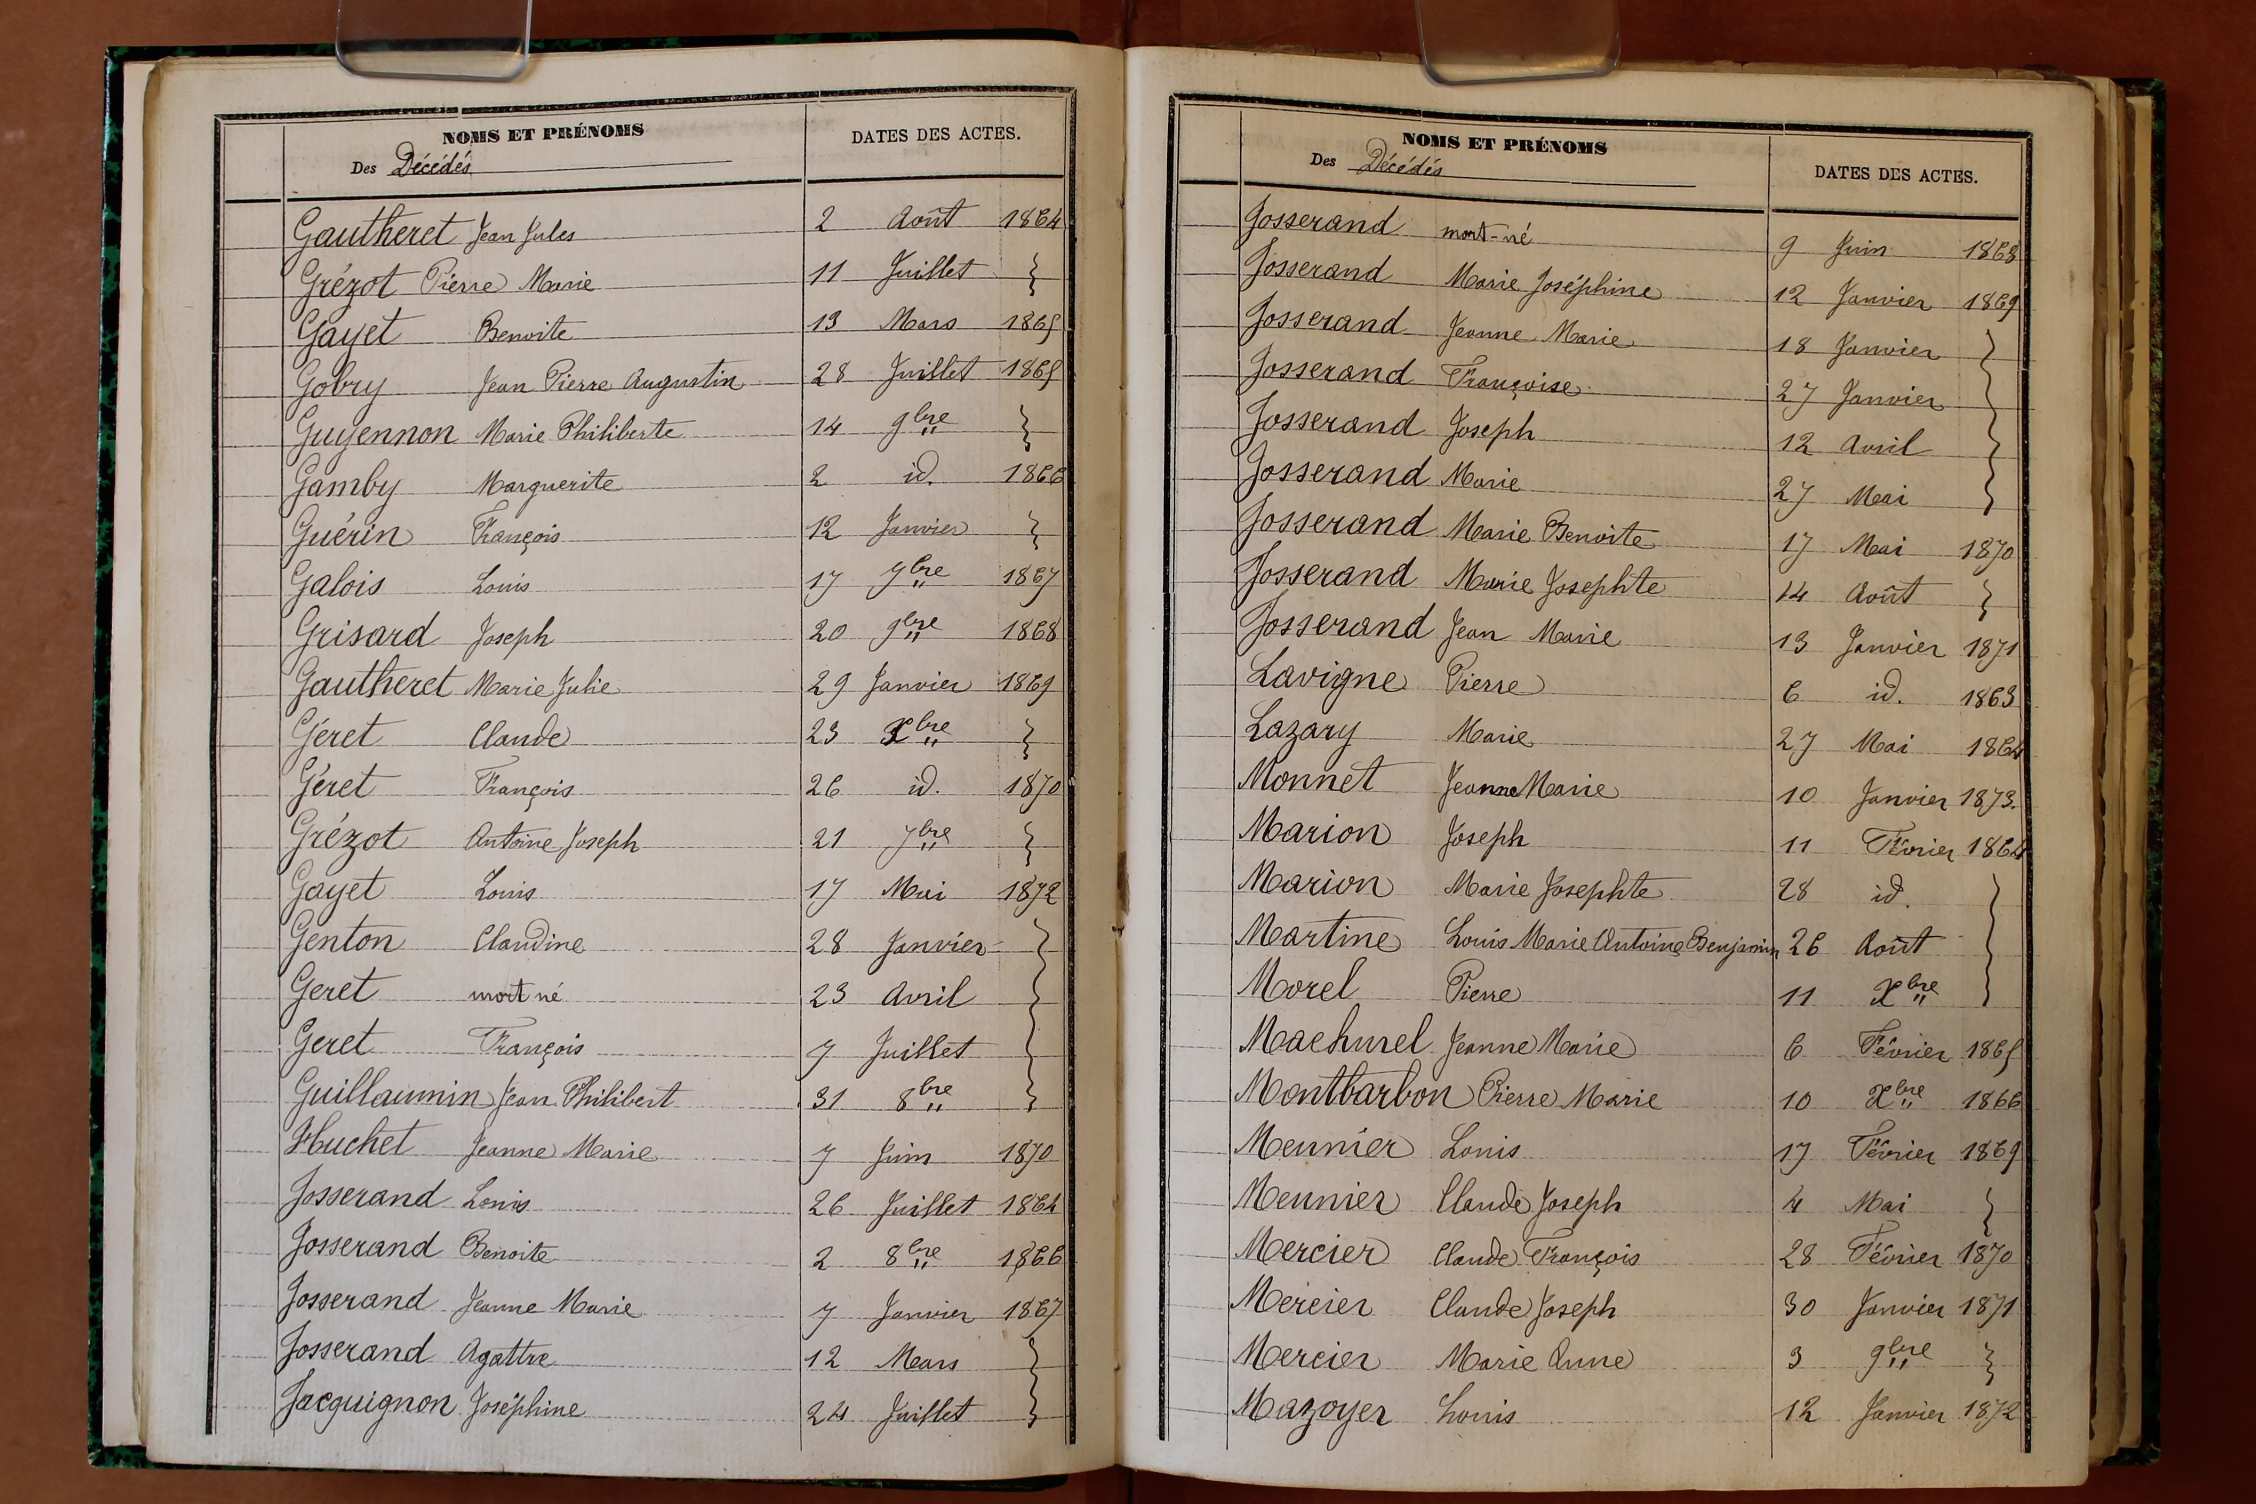 NOMS ET PRÉNOMS
Des Décédés
DATES DES ACTES.
Gautheret Jean Jules 2 Août 1864
Grézot Pierre Marie 11 Juillet }
Gayet Benoite 13 Mars 1865
Gobry Jean Pierre Augustin 28 Juillet 1865
Guyennon Marie Philiberte 14 9bre }
Gamby Marguerite 2 id. 1866
Guérin François 12 Janvier }
Galois Louis 17 9bre 1867
Grisard Joseph 20 9bre 1868
Gautheret Marie Julie 29 Janvier 1869
Géret Claude 23 Xbre }
Géret François 26 id. 1870
Grézot Antoine Joseph 21 7bre }
Gayet Louis 17 Mai 1872
Genton Claudine 28 Janvier }
Geret mort né 23 Avril }
Geret François 7 Juillet }
Guillaumin Jean Philibert 31 8bre }
Huchet Jeanne Marie 7 Juin 1870
Josserand Louis 26 Juillet 1864
Josserand Benoite 2 8bre 1866
Josserand Jeanne Marie 7 Janvier 1867
Josserand Agathe 12 Mars }
Jacquignon Joséphine 24 Juillet }
NOMS ET PRÉNOMS
Des Décédés
DATES DES ACTES.
Josserand mort-né 9 Juin 1868
Josserand Marie Joséphine 12 Janvier 1869
Josserand Jeanne Marie 18 Janvier }
Josserand Françoise 27 Janvier }
Josserand Joseph 12 Avril }
Josserand Marie 27 Mai }
Josserand Marie Benoite 17 Mai 1870
Josserand Marie Josephte 14 Août }
Josserand Jean Marie 13 Janvier 1871
Lavigne Pierre 6 id. 1863
Lazary Marie 27 Mai 1864
Monnet Jeanne Marie 10 Janvier 1873.
Marion Joseph 11 Février 1864
Marion Marie Josephte 28 id. }
Martine Louis Marie Antoine Benjamin 26 Août }
Morel Pierre 11 Xbre }
Machurel Jeanne Marie 6 Février 1865
Montbarbon Pierre Marie 10 Xbre 1866
Meunier Louis 17 Février 1869
Meunier Claude Joseph 4 Mai }
Mercier Claude François 28 Février 1870
Mercier Claude Joseph 30 Janvier 1871
Mercier Marie Anne 3 9bre }
Mazoyer Louis 12 Janvier 1872